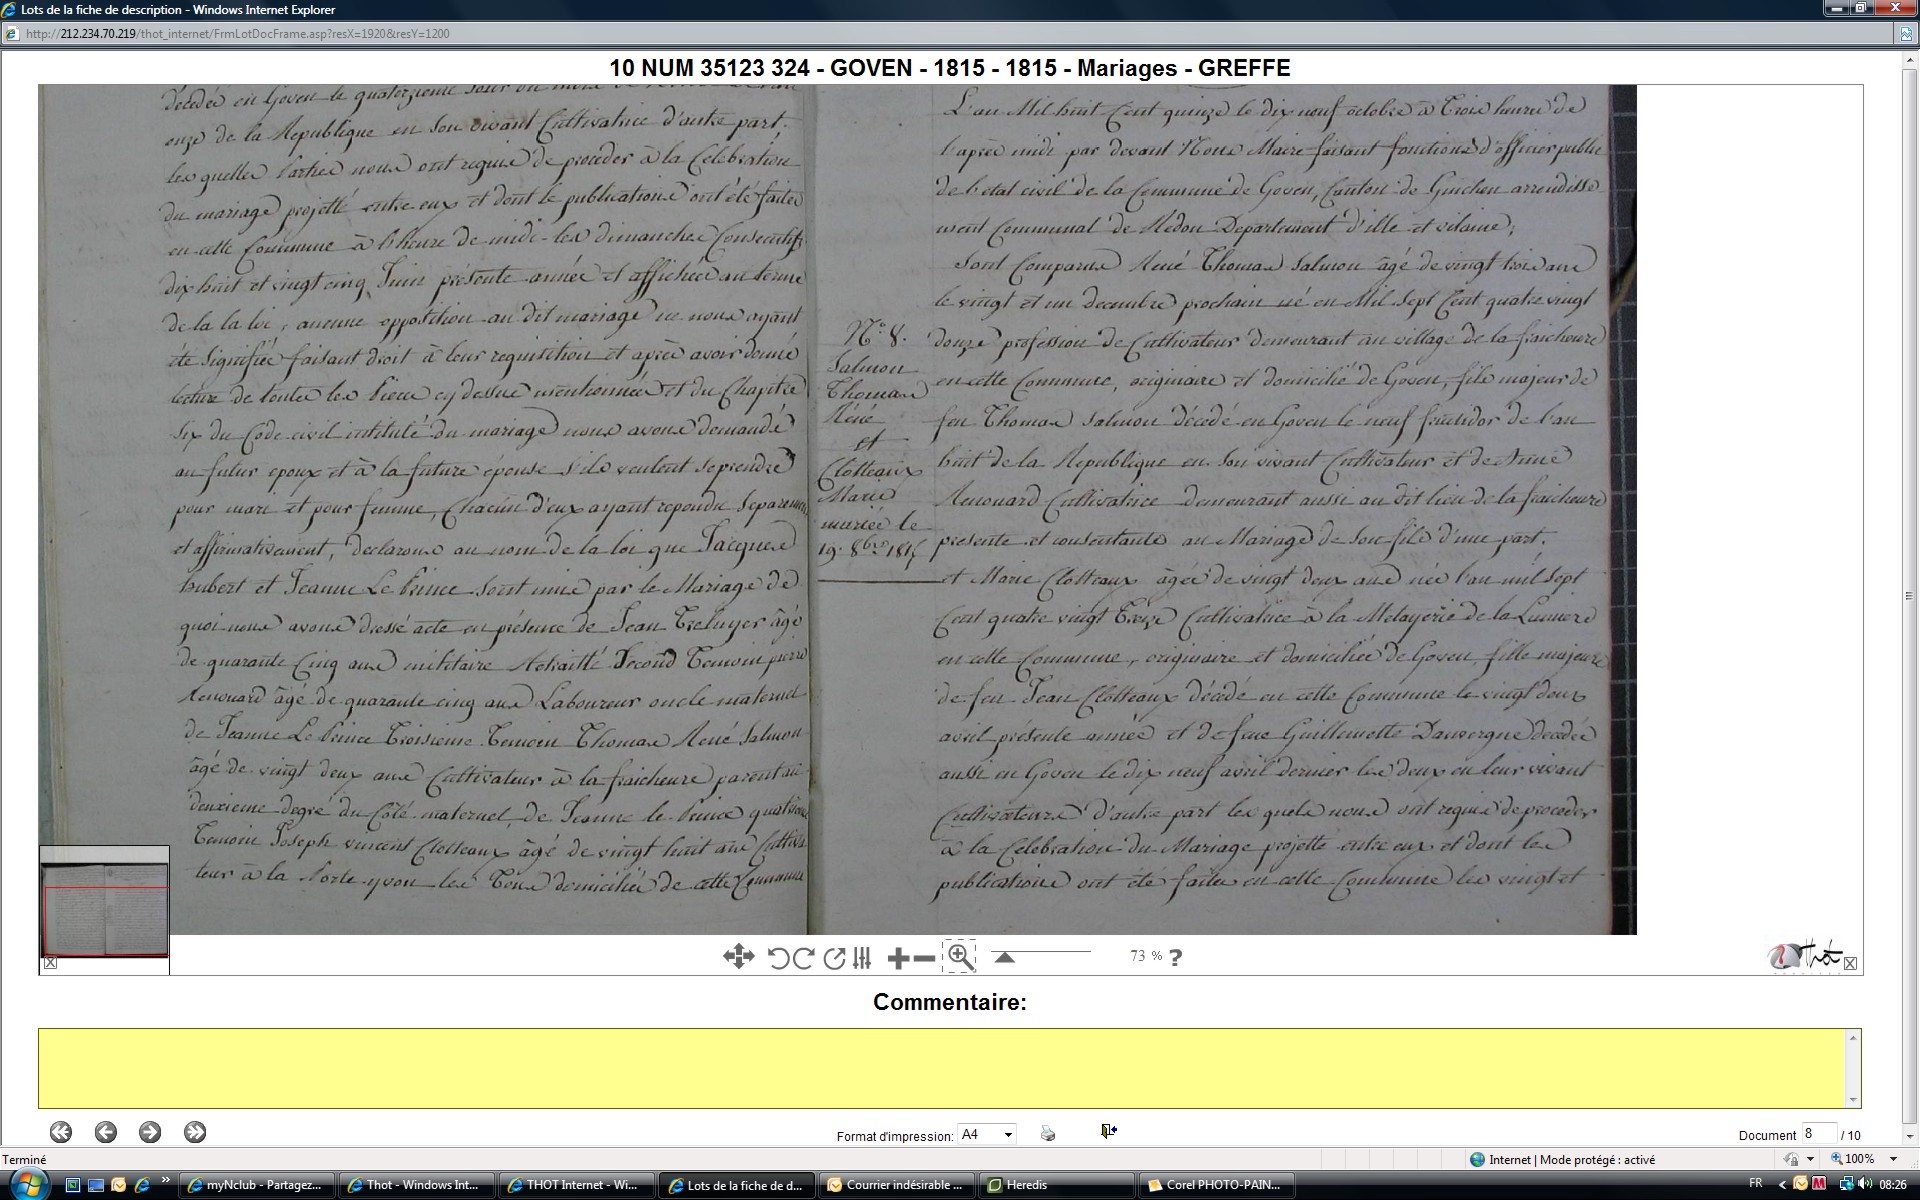 Lots de la fiche de description - Windows Internet Explorer
http://212.234.70.219/thot_internet/FrmLotDocFrame.asp?resX=1920&resY=1200
10 NUM 35123 324 - GOVEN - 1815 - 1815 - Mariages - GREFFE
décédée en Goven le quatorzieme jour du mois de
onze de la Republique en Son vivant Cultivatrice d'autre part.
les quelles Parties nous ont requis de proceder à la Celebration
du mariage projetté entre eux et dont le publications ont été faites
en cette Commune à l'heure de midi les dimanches Consecutifs
dix huit et vingt cinq Juin présente année et affichées au terme
de la la loi, aucune opposition au dit mariage ne nous ayant
été Signifiée faisant droit à leur requisition et après avoir donné
lecture de toutes les Pieces cy dessus mentionnées et du Chapitre
Six du Code civil intitulé du mariage nous avons demandé
au futur epoux et à la future épouse s'ils veulent se prendre
pour mari et pour femme, Chacun d'eux ayant repondu Separemen
et affirmativement, declarons au nom de la loi que Jacques
hubert et Jeanne Le Prince Sont unis par le Mariage de
quoi nous avons dressé acte en présence de Jean Treluyer âgé
de quarante Cinq ans militaire Retraitté Second Temoin pierre
Renouard âgé de quarante cinq ans Laboureur oncle maternel
de Jeanne Le Prince Troisieme Temoin Thomas René Salmon
âgé de vingt deux ans Cultivateur à la fraicheure parent au
deuxieme degré du Côté maternel de Jeanne le Prince quatrieme
Temoin Joseph vincent Clotteaux âgé de vingt huit ans Cultiva
teur à la Porte yvon les Tous domiciliés de cette Commune
N.º 8.
Salmon
Thomas
René
et
Clotteaux
Marie
mariés le
19. 8bre 1815
L'an Mil huit Cent quinze le dix neuf octobre à Trois heures de
l'après midi par devant Nous Maire faisant fonctions d'officier public
de l'etat civil de la Commune de Goven, Canton de Guichen arrondisse
ment Communal de Redon Departement d'ille et vilaine,
Sont Comparus René Thomas Salmon âgé de vingt trois ans
le vingt et un decembre prochain né en Mil Sept Cent quatre vingt
douze profession de Cultivateur demeurant au village de la fraicheure
en cette Commune, originaire et domicilié de Goven, fils majeur de
feu Thomas Salmon décédé en Goven le neuf fructidor de l'an
huit de la Republique en Son vivant Cultivateur et de Anne
Renouard Cultivatrice demeurant aussi au dit lieu de la fraicheure
présente et consentante au Mariage de Son fils d'une part.
et Marie Clotteaux âgée de vingt deux ans née l'an mil Sept
Cent quatre vingt Treize Cultivatrice à la Métayerie de la Lumiere
en cette Commune, originaire et domiciliée de Goven fille majeure
de feu Jean Clotteaux décédé en cette Commune le vingt deux
avril présente année et de feue Guillemette Dauvergne décédée
aussi en Goven le dix neuf avril dernier les deux en leur vivant
Cultivateurs d'autre part les quels nous ont requis de proceder
à la Celebration du Mariage projetté entre eux et dont les
publications ont été faites en cette Commune les vingt et
73 % ?
Thot
Commentaire:
Format d'impression: A4
Document 8 / 10
Terminé
Internet | Mode protégé : activé
100%
myNclub - Partagez...
Thot - Windows Int...
THOT Internet - Wi...
Lots de la fiche de d...
Courrier indésirable ...
Heredis
Corel PHOTO-PAIN...
FR
08:26